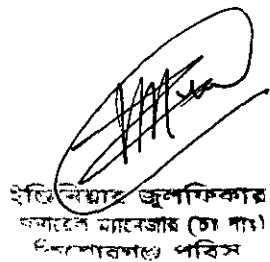 ইঞ্জিনিয়ার জুলফিকার
জেনারেল ম্যানেজার (চঃ দাঃ)
কিশোরগঞ্জ পবিস